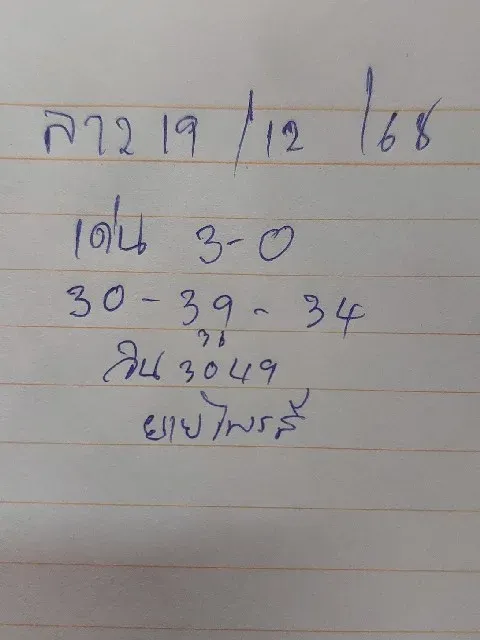 ลาว 19/12/68
เด่น 3-0
30-39-34
วิน 3049
ยายไพรส์